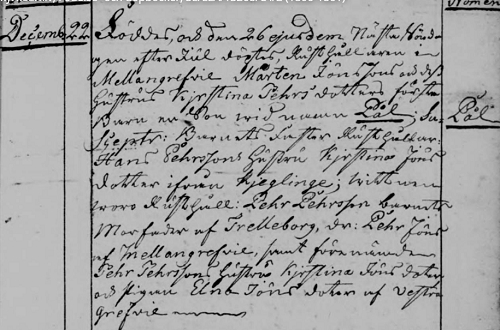 Nomen
Decemb: 22 Föddes, och den 26 ejusdem Nästa Hindag
gen efter Jul döptes, Rusthållaren in
Mellangrefvie Mårten Jönssons och deß
Hustrus Kjerstina Pehrs dotters första
Barn en Son vid namn Pål; Su- Pål
sceptr: Barnets Faster Rusthållar:
Hans Pehrssons Hustru Kjerstina Jöns
dotter ifrån Kjeglinge; vittnen
voro Rusthåll: Pehr Pehrsson barnets
Morfader af Trelleborg, dr: Pehr Jöns
af Mellangrefvie, samt förenämnden
Pehr Pehrssons Hustru Kjerstina Jöns doter
och pigan Elna Jöns doter af Vestra
grefvie